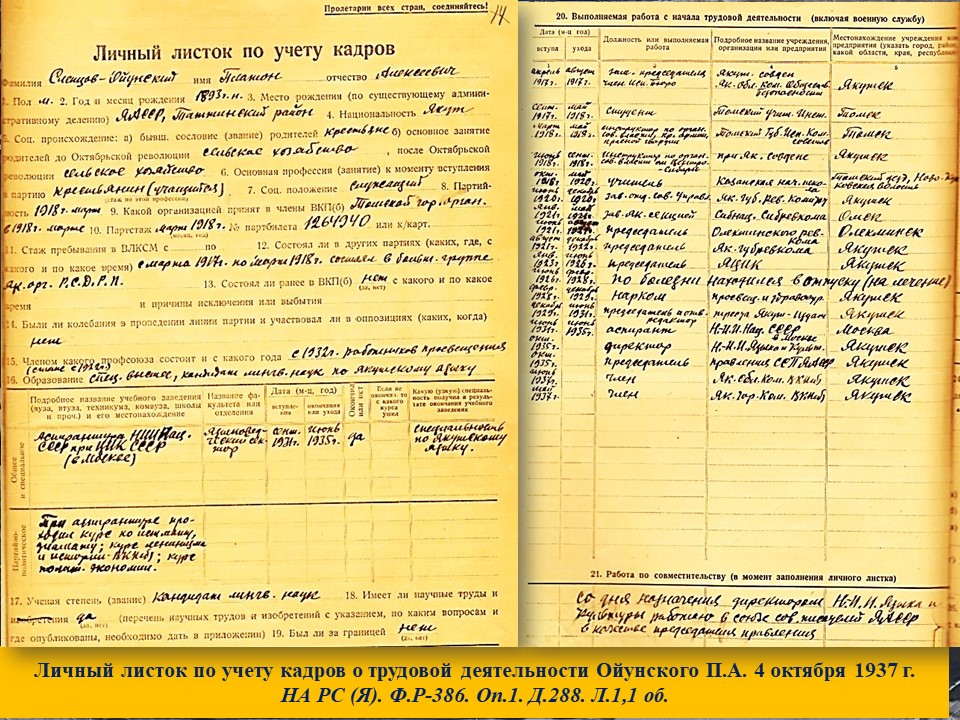 Пролетарии всех стран, соединяйтесь! 14
Личный листок по учету кадров
Фамилия Слепцов-Ойунский имя Платон отчество Алексеевич
1. Пол м. 2. Год и месяц рождения 1893 г. н. 3. Место рождения (по существующему админи-
стративному делению) ЯАССР, Таттинский район 4. Национальность Якут
5. Соц. происхождение: а) бывш. сословие (звание) родителей крестьяне б) основное занятие
родителей до Октябрьской революции сельское хозяйство, после Октябрьской
революции сельское хозяйство 6. Основная профессия (занятие) к моменту вступления
в партию крестьянин (учащийся), 7. Соц. положение служащий 8. Партий-
(стаж по этой профессии)
ность 1918 г. март 9. Какой организацией принят в члены ВКП(б) Томской гор.орган.
в 1918 г. марте 10. Партстаж март 1918 г. № партбилета 1264940 или к/карт.
(месяц, год)
11. Стаж пребывания в ВЛКСМ с по 12. Состоял ли в других партиях (каких, где, с
какого и по какое время) с марта 1917 г. по март 1918 г. состоял в больш. группе
Як. орг. Р.С.Д.Р.П. 13. Состоял ли ранее в ВКП(б) нет с какого и по какое
(да, нет)
время и причины исключения или выбытия
14. Были ли колебания в проведении линии партии и участвовал ли в оппозициях (каких, когда)
нет
15. Членом какого профсоюза состоит и с какого года с 1932 г. работников просвещения
16. Образование спец. высшее, кандидат лингв. наук по якутскому языку
Подробное название учебного заведения (вуза, втуза, техникума, комвуза, школы и проч.) и его местонахождение
Название факультета или отделения
Дата (м-ц, год)
вступления
окончания или ухода
Окончил или нет
Если не окончил, то с какого курса ушел
Какую (узкую) специальность получил в результате окончания учебного заведения
Общее и специальное
Аспирантура НИИ Нац. СССР при ЦИК СССР (в Москве)
Языковедческий сектор
сент. 1931 г.
июнь 1935 г.
да
специальность по Якутскому языку.
Партийно-политическое
При аспирантуре про-
ходил курс по истмату,
диамату; курс ленинизма
и истории ВКП(б); курс
полит. экономии.
17. Ученая степень (звание) кандидат лингв. наук 18. Имеет ли научные труды и
изобретения да (перечень научных трудов и изобретений с указанием, по каким вопросам и
(да, нет)
где опубликованы, необходимо дать в приложении) 19. Был ли за границей нет
(да, нет)
20. Выполняемая работа с начала трудовой деятельности (включая военную службу)
Дата (м-ц год)
вступл
ухода
Должность или выполняемая работа
Подробное название учреждения, организации или предприятия
Местонахождение учреждения или предприятия (указать город, район, какой области, края, республики)
апрель 1917 г. август 1917 г. зам. председателя Якут. совдеп
член исп. бюро Як. обл. Ком. Обществ. безопасности Якутск
сент. 1917 г. май 1918 г. студент Томский учит. Инст. Томск
март 1918 г. май 1918 г. Томский Губ. Исп. Ком. советов Томск
июнь 1918 г. при Як. совдепе Якутск
учитель
Як. Губ. Рев. Комитет Якутск
зав. Як. секцией Сибнац. Сибревкома Омск
председатель Олекминского рев-кома Олекминск
председатель Як. губревкома Якутск
председатель ЯЦИК Якутск
по болезни находился в отпуску (на лечении)
нарком Якутск
председатель и отв. редактор Якутск
аспирант Н-И.И. Нац. СССР в Москве Москва
директор Н-И.И Языка и Культ. Якутск
председатель правления ССП ЯАССР Якутск
член Як. Обл. Ком. ВКП(б) Якутск
член Як. Гор. Ком. ВКП(б) Якутск
21. Работа по совместительству (в момент заполнения личного листка)
со дня назначения директором Н-И.И. Языка и
Культуры работаю в союзе сов. писателей ЯАССР
в качестве председателя правления
Личный листок по учету кадров о трудовой деятельности Ойунского П.А. 4 октября 1937 г.
НА РС (Я). Ф.Р-386. Оп.1. Д.288. Л.1,1 об.